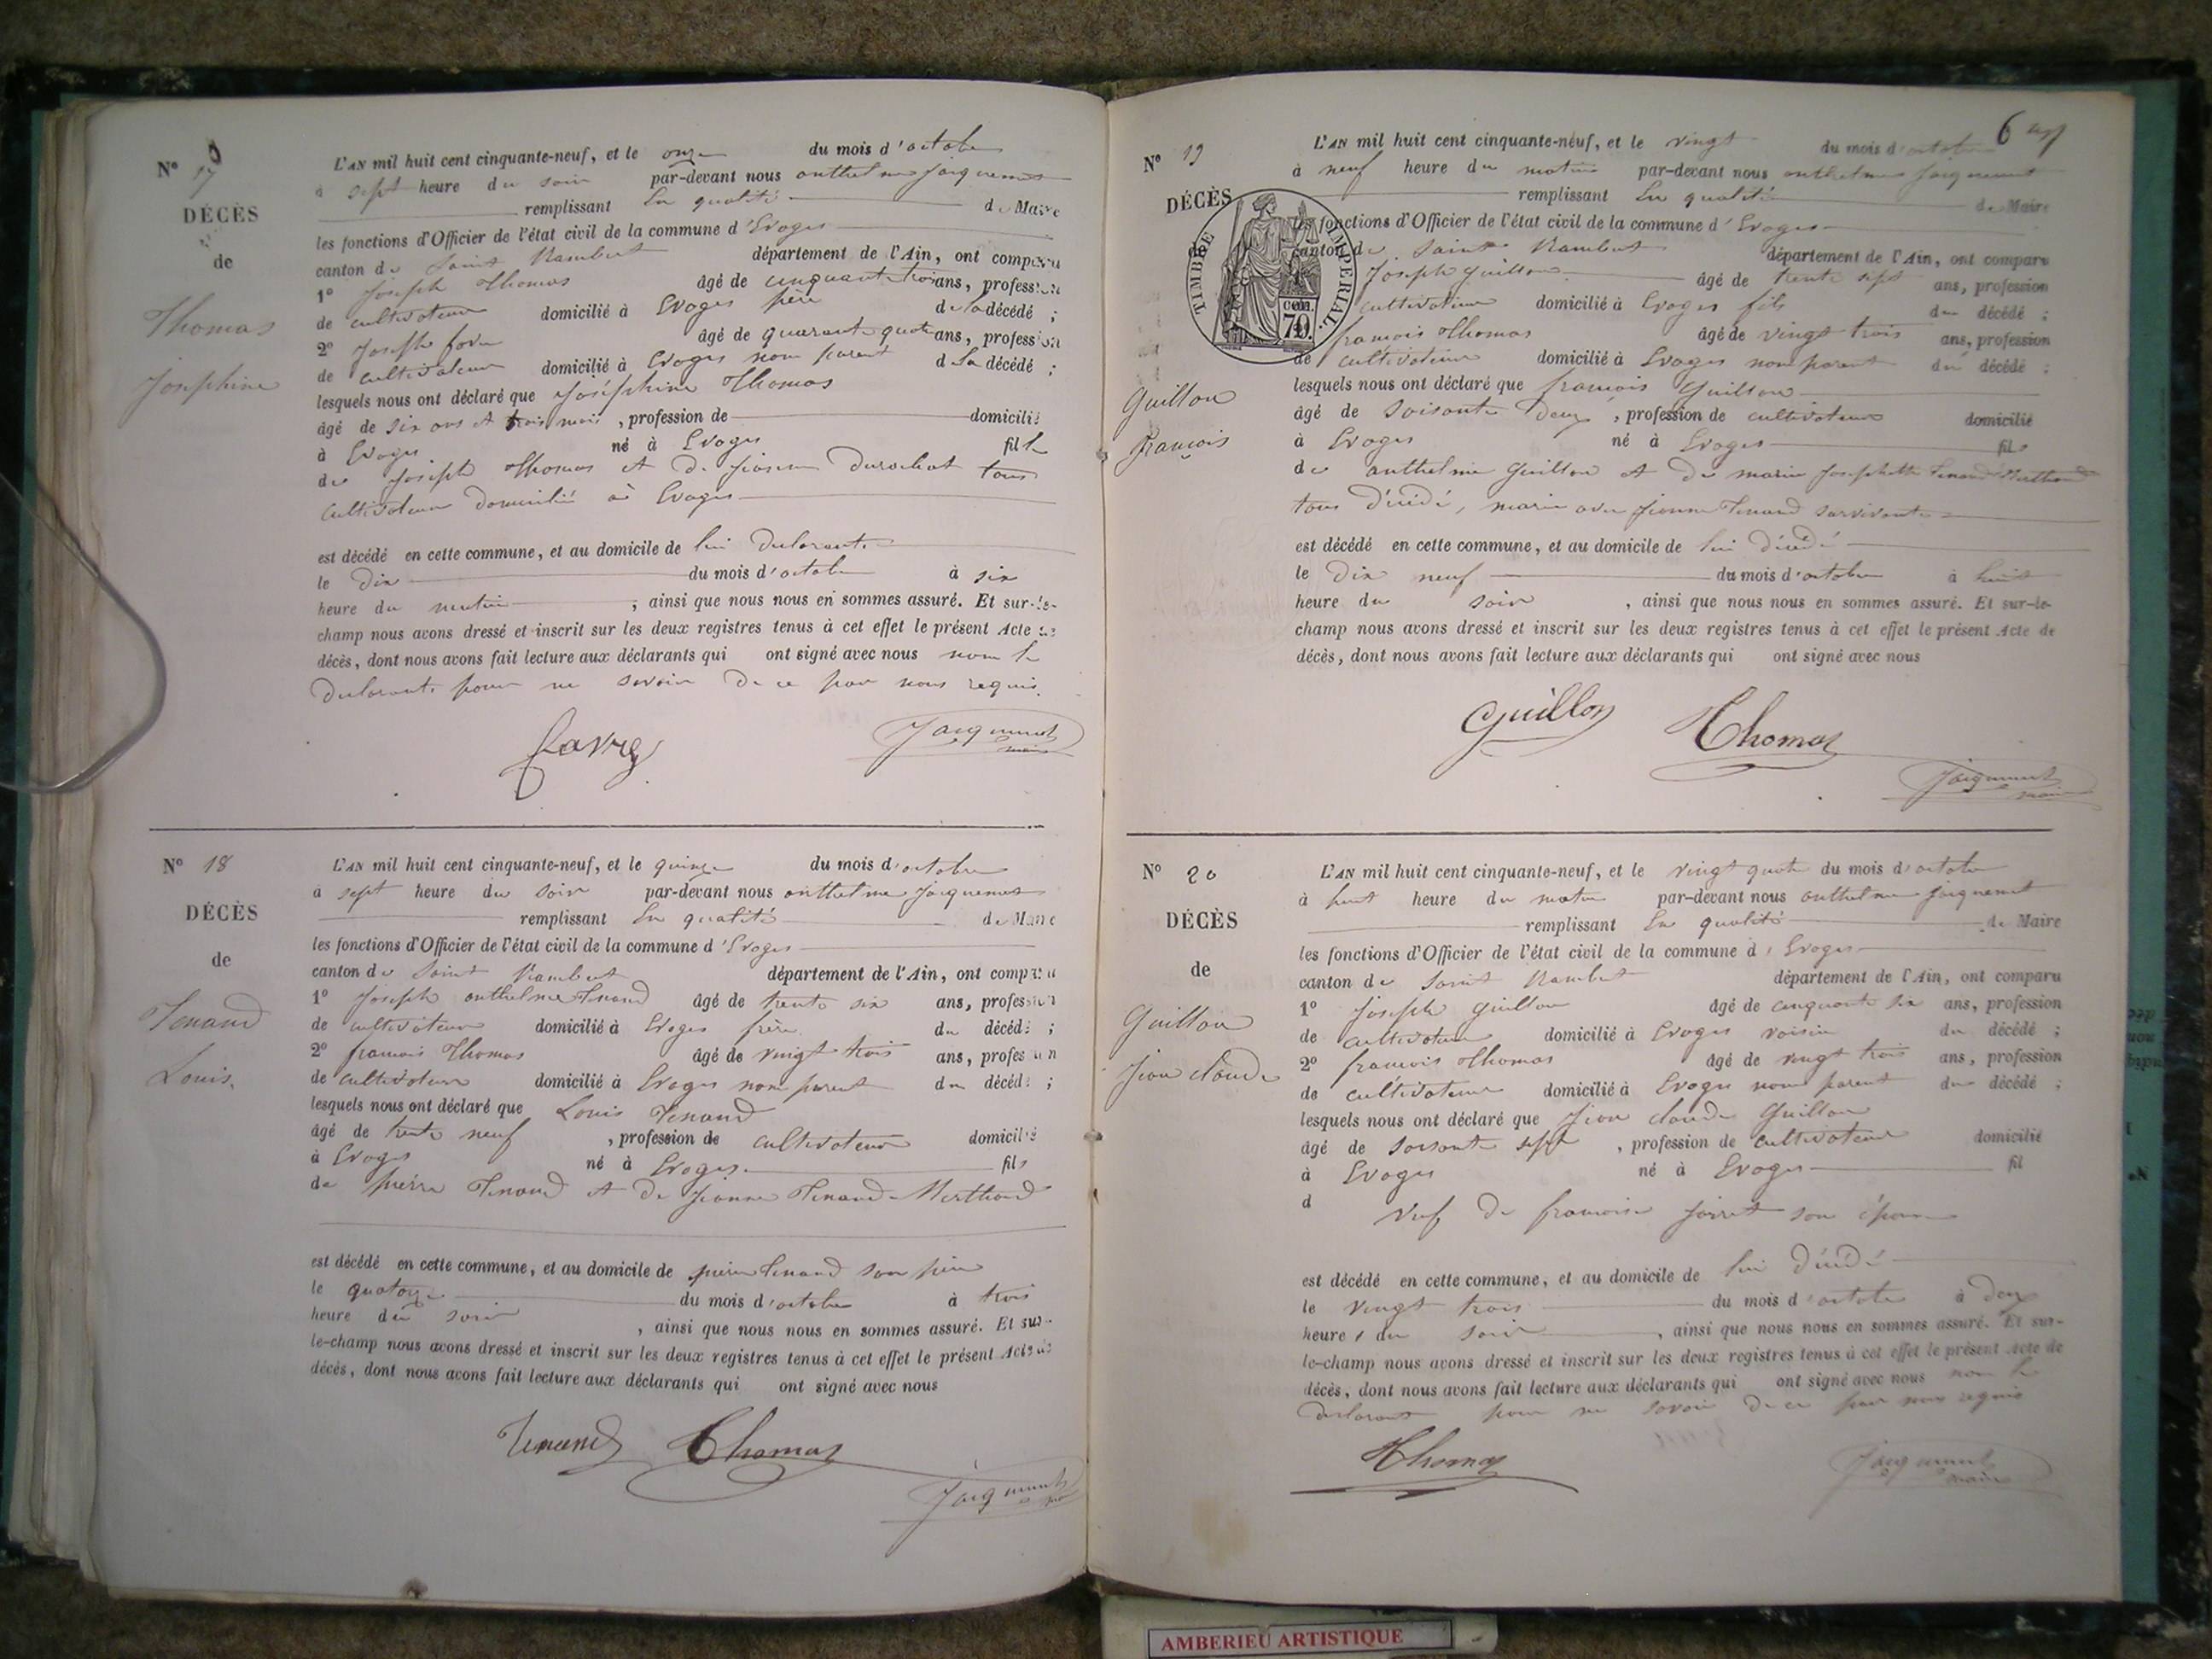 N° 17
DÉCÈS
de
Thomas
Josephine
L'AN mil huit cent cinquante-neuf, et le onze du mois d'octobre
à sept heure du soir par-devant nous anthelme Jacquemet
remplissant En qualité de Maire
les fonctions d'Officier de l'état civil de la commune d'Evoges
canton de Saint Rambert département de l'Ain, ont comparu
1° Joseph Thomas âgé de cinquante trois ans, profession
de cultivateur domicilié à Evoges père de la décédé ;
2° Joseph âgé de quarante quatre ans, profession
de cultivateur domicilié à Evoges non parent de la décédé ;
lesquels nous ont déclaré que Joséphine Thomas
âgé de six ans et trois mois, profession de domicilié
à Evoges né à Evoges fille
de Joseph Thomas et de Durochat tous
cultivateur domicilié à Evoges
est décédé en cette commune, et au domicile de lui declarante
le dix du mois d'octobre à six
heure du matin, ainsi que nous nous en sommes assuré. Et sur-le-
champ nous avons dressé et inscrit sur les deux registres tenus à cet effet le présent Acte de
décès, dont nous avons fait lecture aux déclarants qui ont signé avec nous non le
declarants pour ne savoir de ce par nous requis.
Jacquemet
maire
N° 18
DÉCÈS
de
Tenand
Louis.
L'AN mil huit cent cinquante-neuf, et le quinze du mois d'octobre
à sept heure du soir par-devant nous anthelme Jacquemet
remplissant En qualité de Maire
les fonctions d'Officier de l'état civil de la commune d'Evoges
canton de Saint Rambert département de l'Ain, ont comparu
1° Joseph anthelme Tenand âgé de trente six ans, profession
de cultivateur domicilié à Evoges frère du décédé ;
2° francois Thomas âgé de vingt trois ans, profession
de cultivateur domicilié à Evoges non parent du décédé ;
lesquels nous ont déclaré que Louis Tenand
âgé de trente neuf, profession de cultivateur domicilié
à Evoges né à Evoges fils
de pierre Tenand et de Jeanne Tenand-Merthand
est décédé en cette commune, et au domicile de pierre Tenand son père
le quatorze du mois d'octobre à trois
heure du soir, ainsi que nous nous en sommes assuré. Et sur-
le-champ nous avons dressé et inscrit sur les deux registres tenus à cet effet le présent Acte de
décès, dont nous avons fait lecture aux déclarants qui ont signé avec nous
Tenand Thomas
Jacquemet
6
N° 19
DÉCÈS
de
TIMBRE IMPERIAL.
CEN. 70.
Guillon
françois
L'AN mil huit cent cinquante-neuf, et le vingt du mois d'octobre
à neuf heure du matin par-devant nous anthelme Jacquemet
remplissant En qualité de Maire
les fonctions d'Officier de l'état civil de la commune d'Evoges
canton de Saint Rambert département de l'Ain, ont comparu
Joseph guillon âgé de trente sept ans, profession
cultivateur domicilié à Evoges fils du décédé ;
françois Thomas âgé de vingt trois ans, profession
de cultivateur domicilié à Evoges non parent du décédé ;
lesquels nous ont déclaré que francois Guillon
âgé de soisante deux, profession de cultivateur domicilié
à Evoges né à Evoges fils
de anthelme Guillon et de marie Josephette Tenand Merthand
tous décédé, marié avec Jeanne Tenand survivante
est décédé en cette commune, et au domicile de lui décédé
le dix neuf du mois d'octobre à huit
heure du soir, ainsi que nous nous en sommes assuré. Et sur-le-
champ nous avons dressé et inscrit sur les deux registres tenus à cet effet le présent Acte de
décès, dont nous avons fait lecture aux déclarants qui ont signé avec nous
Guillon Thomas
Jacquemet
maire
N° 20
DÉCÈS
de
Guillon
Jean claude
L'AN mil huit cent cinquante-neuf, et le vingt quatre du mois d'octobre
à huit heure du matin par-devant nous anthelme Jacquemet
remplissant En qualité de Maire
les fonctions d'Officier de l'état civil de la commune d'Evoges
canton de Saint Rambert département de l'Ain, ont comparu
1° Joseph guillon âgé de cinquante six ans, profession
de cultivateur domicilié à Evoges voisin du décédé ;
2° francois Thomas âgé de vingt trois ans, profession
de cultivateur domicilié à Evoges non parent du décédé ;
lesquels nous ont déclaré que Jean claude Guillon
âgé de soisante sept, profession de cultivateur domicilié
à Evoges né à Evoges fil
d veuf de francoise son épouse
est décédé en cette commune, et au domicile de lui décédé
le vingt trois du mois d'octobre à deux
heures du soir, ainsi que nous nous en sommes assuré. Et sur-
le-champ nous avons dressé et inscrit sur les deux registres tenus à cet effet le présent Acte de
décès, dont nous avons fait lecture aux déclarants qui ont signé avec nous non le
declarant pour ne savoir de ce par nous requis
Thomas
Jacquemet
maire
AMBERIEU ARTISTIQUE